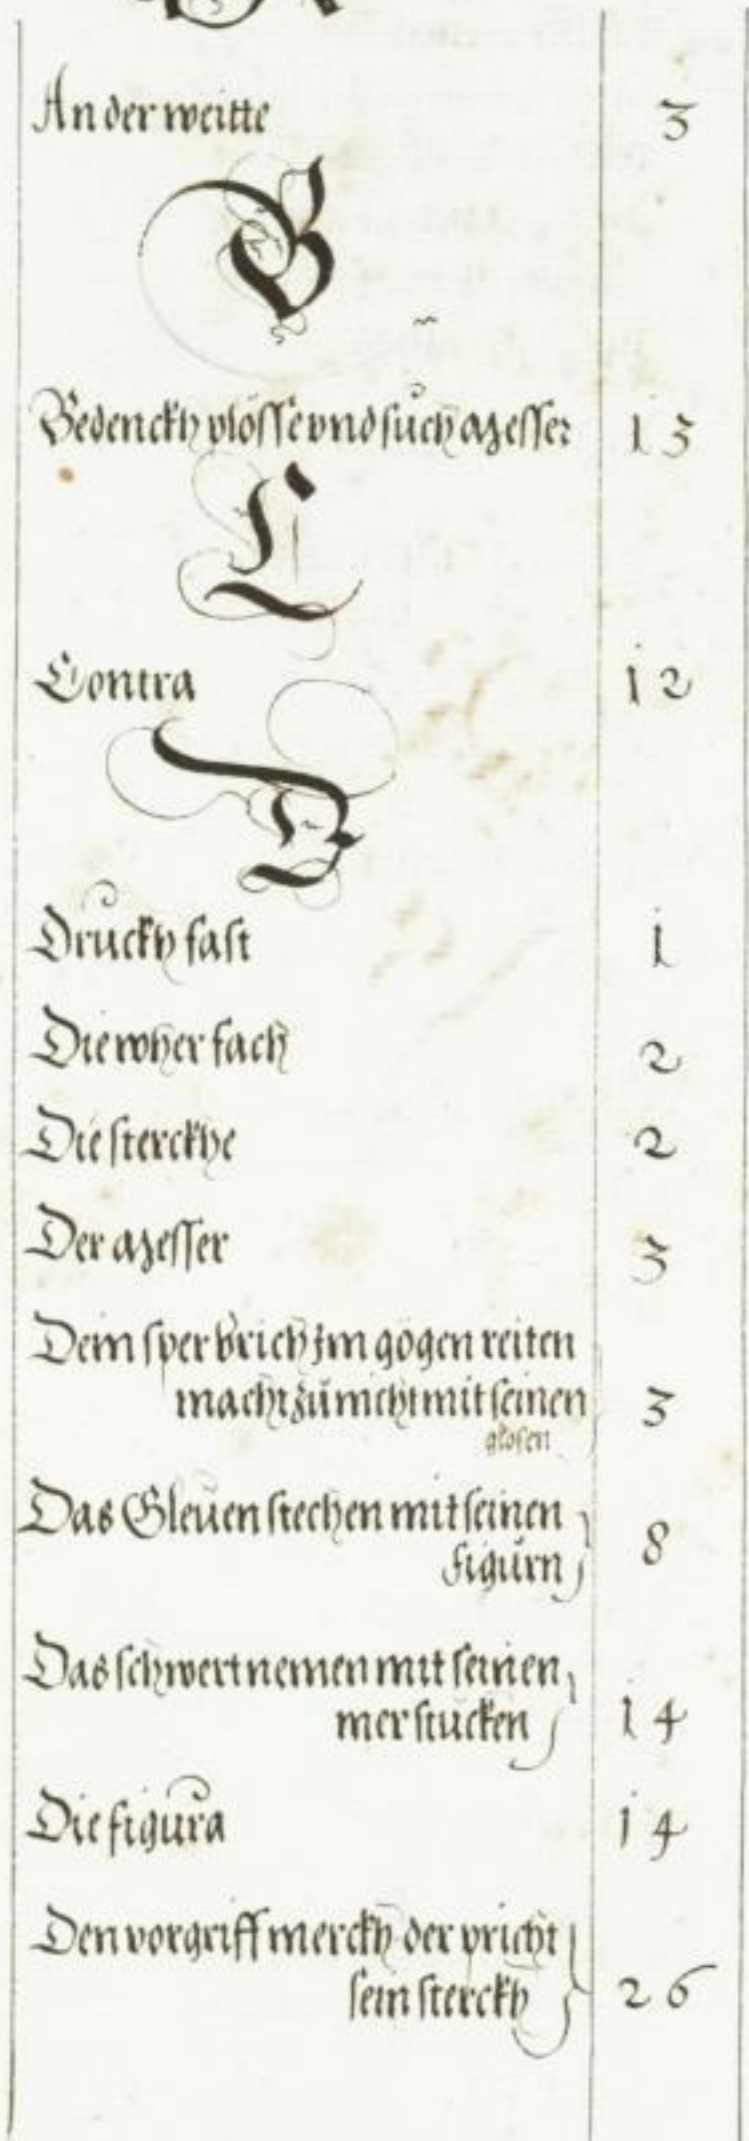 A
An der weitte 3
B
Bedenckh plösse vnd such messer 13
C
Contra 12
D
Druckh fast 1
Die wher fach 2
Die sterckhe 2
Der messer 3
Dein sper brich jm gögen reiten
macht zu nicht mit seinen 3
glosen
Das Gleuen stechen mit seinen
figurn 8
Das schwert nemen mit seinen
mer stucken 14
Die figura 14
Den vorgriff merckh der pricht
sein sterckh 26